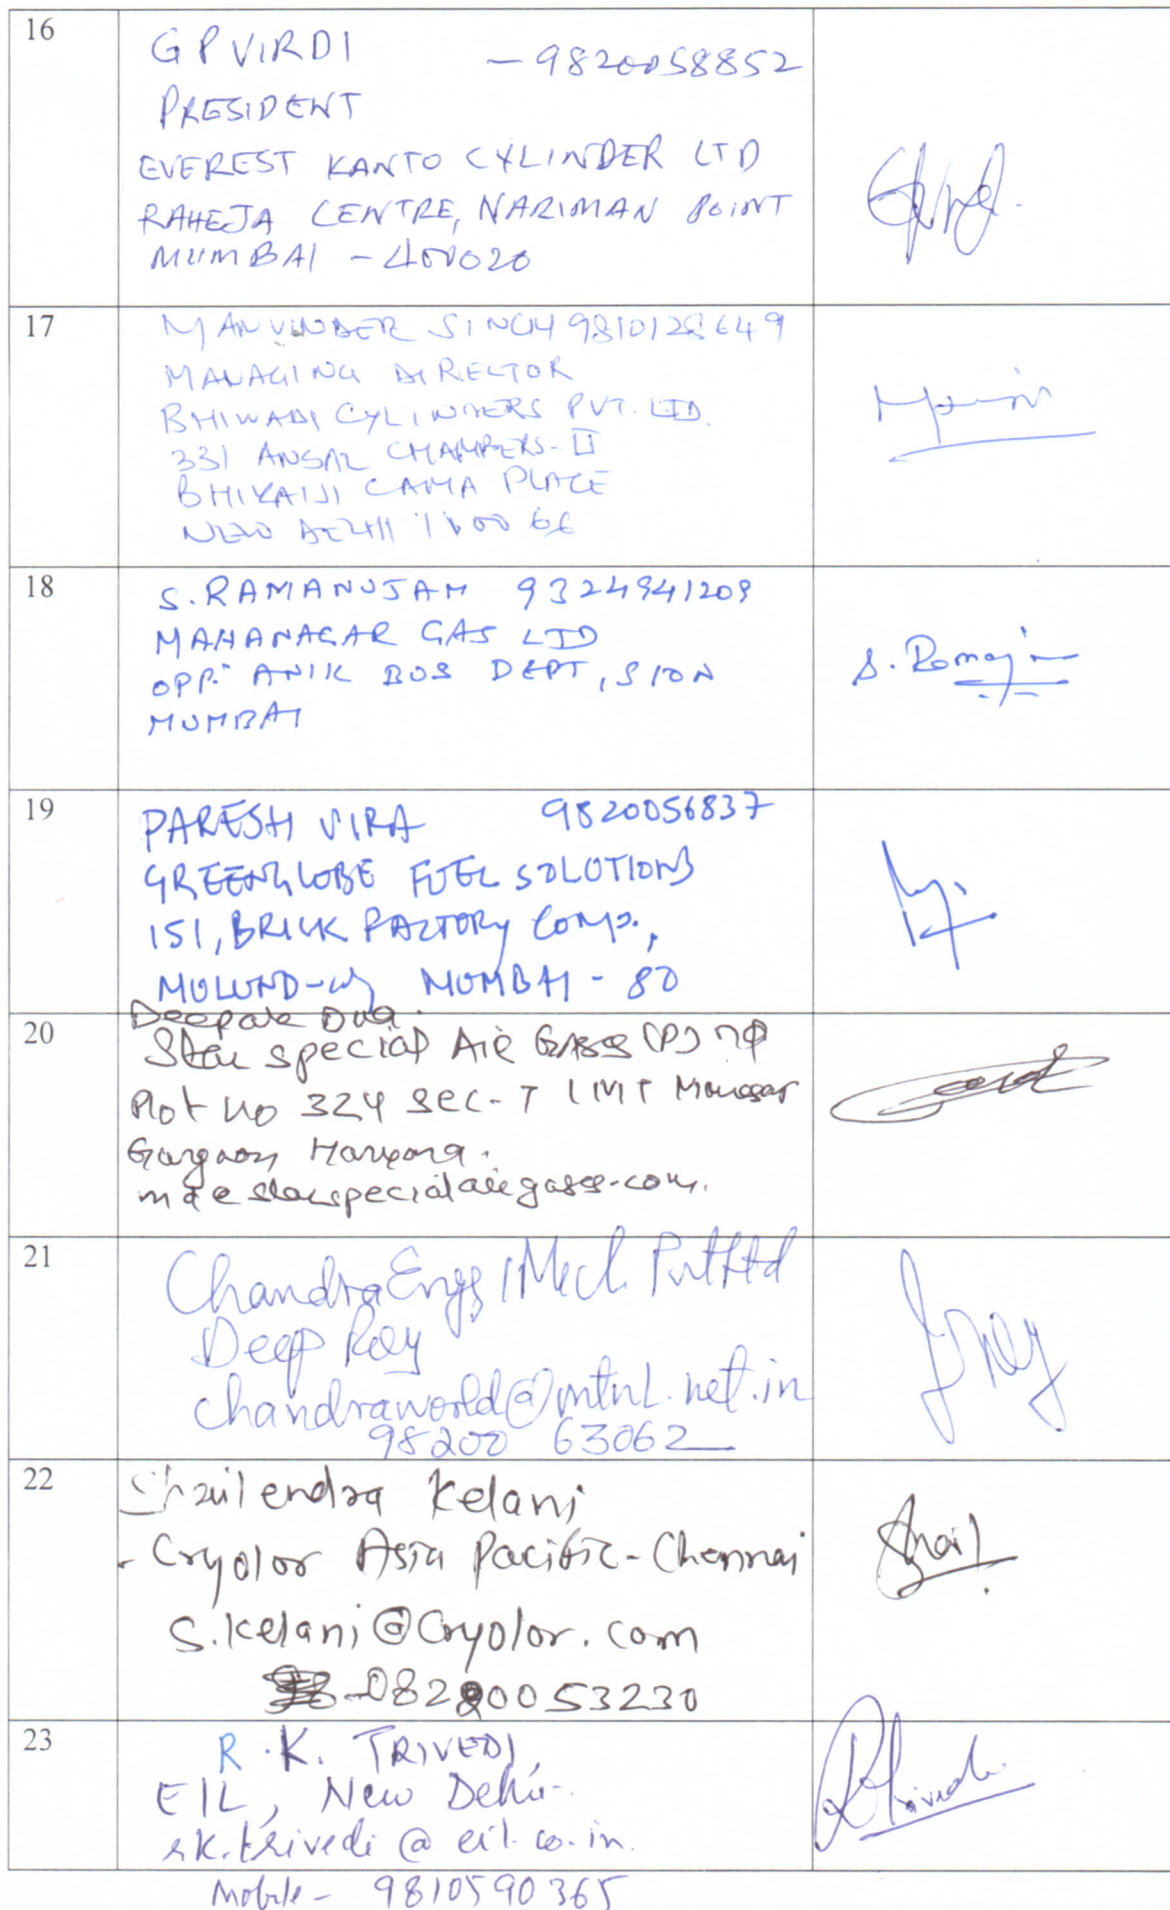 16
G P VIRDI - 9820058852
PRESIDENT
EVEREST KANTO CYLINDER LTD
RAHEJA CENTRE, NARIMAN POINT
MUMBAI - 400020
17
MANVINDER SINGH 9810128649
MANAGING DIRECTOR
BHIWADI CYLINDERS PVT. LTD.
331 ANSAL CHAMBERS-II
BHIKAIJI CAMA PLACE
NEW DELHI 110066
18
S. RAMANUJAM 9324941209
MAHANAGAR GAS LTD
OPP. ANIK BUS DEPT, SION
MUMBAI
S. Ramaj
19
PARESH VIRA 9820056837
GREENGLOBE FUEL SOLUTIONS
151, BRICK FACTORY COMP.,
MULUND-W, MUMBAI - 80
20
Deepak Dua.
Star special Air Gases (P)
Plot no 324 Sec-7 IMT Manesar
Gurgaon Haryana.
md@starspecialairgases.com.
21
Chandra Engg / Mech. Pvt Ltd
Deep Roy
chandraworld@mtnl.net.in
98200 63062
22
Shailendra Kelani
- Cryolor Asia Pacific - Chennai
S.kelani@Cryolor.com
-08220053230
Shail
23
R.K. TRIVEDI,
EIL, New Delhi-
rk.trivedi@eil.co.in.
RTrivedi
Mobile - 9810590365